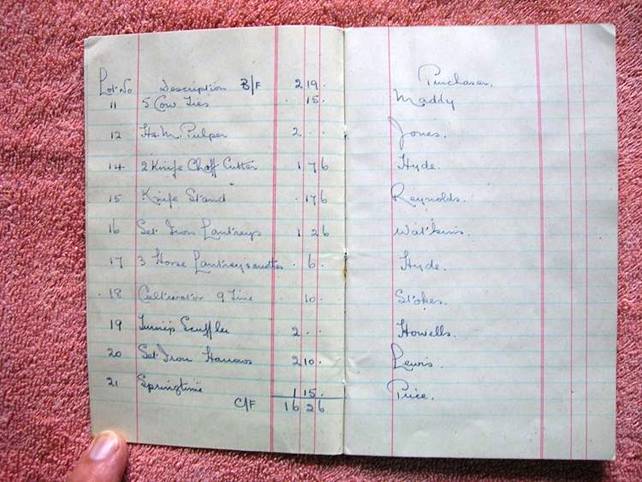 Lot No Description B/F 2 19 . Purchaser.
11 5 Cow Ties . 15 . Maddy
12 Pulper 2 . . Jones.
14 2 Knife Chaff Cutter 1 7 6 Hyde.
15 Knife Stand . 17 6 Reynolds.
16 Set Iron Lantreys 1 2 6 Watkins.
17 3 Horse . 6 . Hyde.
18 Cultivator 9 Tine . 10 . Stokes.
19 Turnip Scuffler 2 . . Howells.
20 Set Iron Harrows 2 10 . Lewis.
21 Springtine 1 15 . Price.
C/F 16 2 6